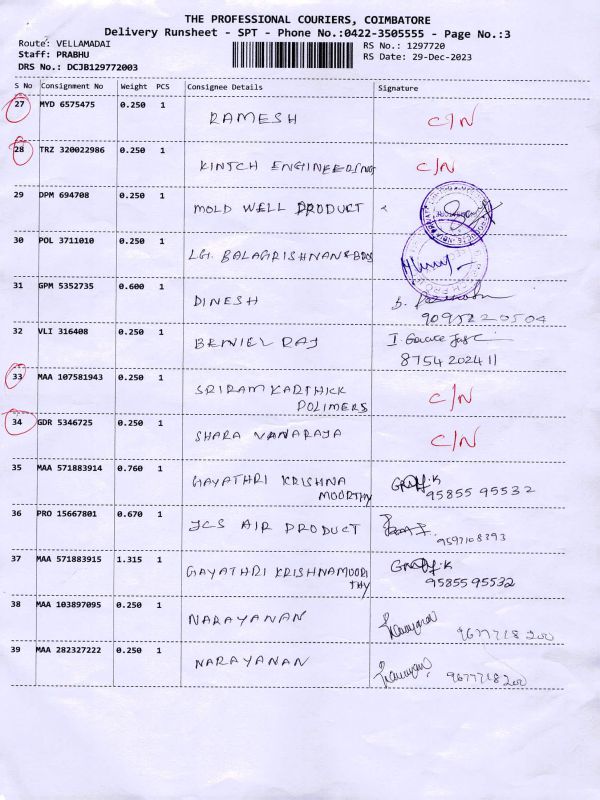 THE PROFESSIONAL COURIERS, COIMBATORE
Delivery Runsheet - SPT - Phone No.:0422-3505555 - Page No.:3
Route: VELLAMADAI
RS No.: 1297720
Staff: PRABHU
RS Date: 29-Dec-2023
DRS No.: DCJB129772003
S No Consignment No Weight PCS Consignee Details Signature
27 MYD 6575475 0.250 1 RAMESH C/N
28 TRZ 320022986 0.250 1 KINTCH ENGINEERING C/N
29 DPM 694708 0.250 1 MOLD WELL PRODUCT
30 POL 3711010 0.250 1 LG. BALAGRISHNAN & BROS
31 GPM 5352735 0.600 1 DINESH
32 VLI 316408 0.250 1 BENIEL RAJ
8754202411
33 MAA 107581943 0.250 1 SRIRAM KARTHICK C/N
POLIMERS
34 GDR 5346725 0.250 1 SHARA VANARAJA C/N
35 MAA 571883914 0.760 1 GAYATHRI KRISHNA
MOORTHY 95855 95532
36 PRO 15667801 0.670 1 JCS AIR PRODUCT
37 MAA 571883915 1.315 1 GAYATHRI KRISHNAMOOR
THY 95855 95532
38 MAA 103897095 0.250 1 NARAYANAN
39 MAA 282327222 0.250 1 NARAYANAN